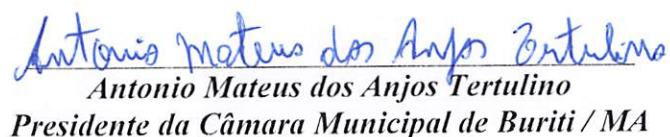 Antonio Mateus dos Anjos Tertulino
Antonio Mateus dos Anjos Tertulino
Presidente da Câmara Municipal de Buriti / MA